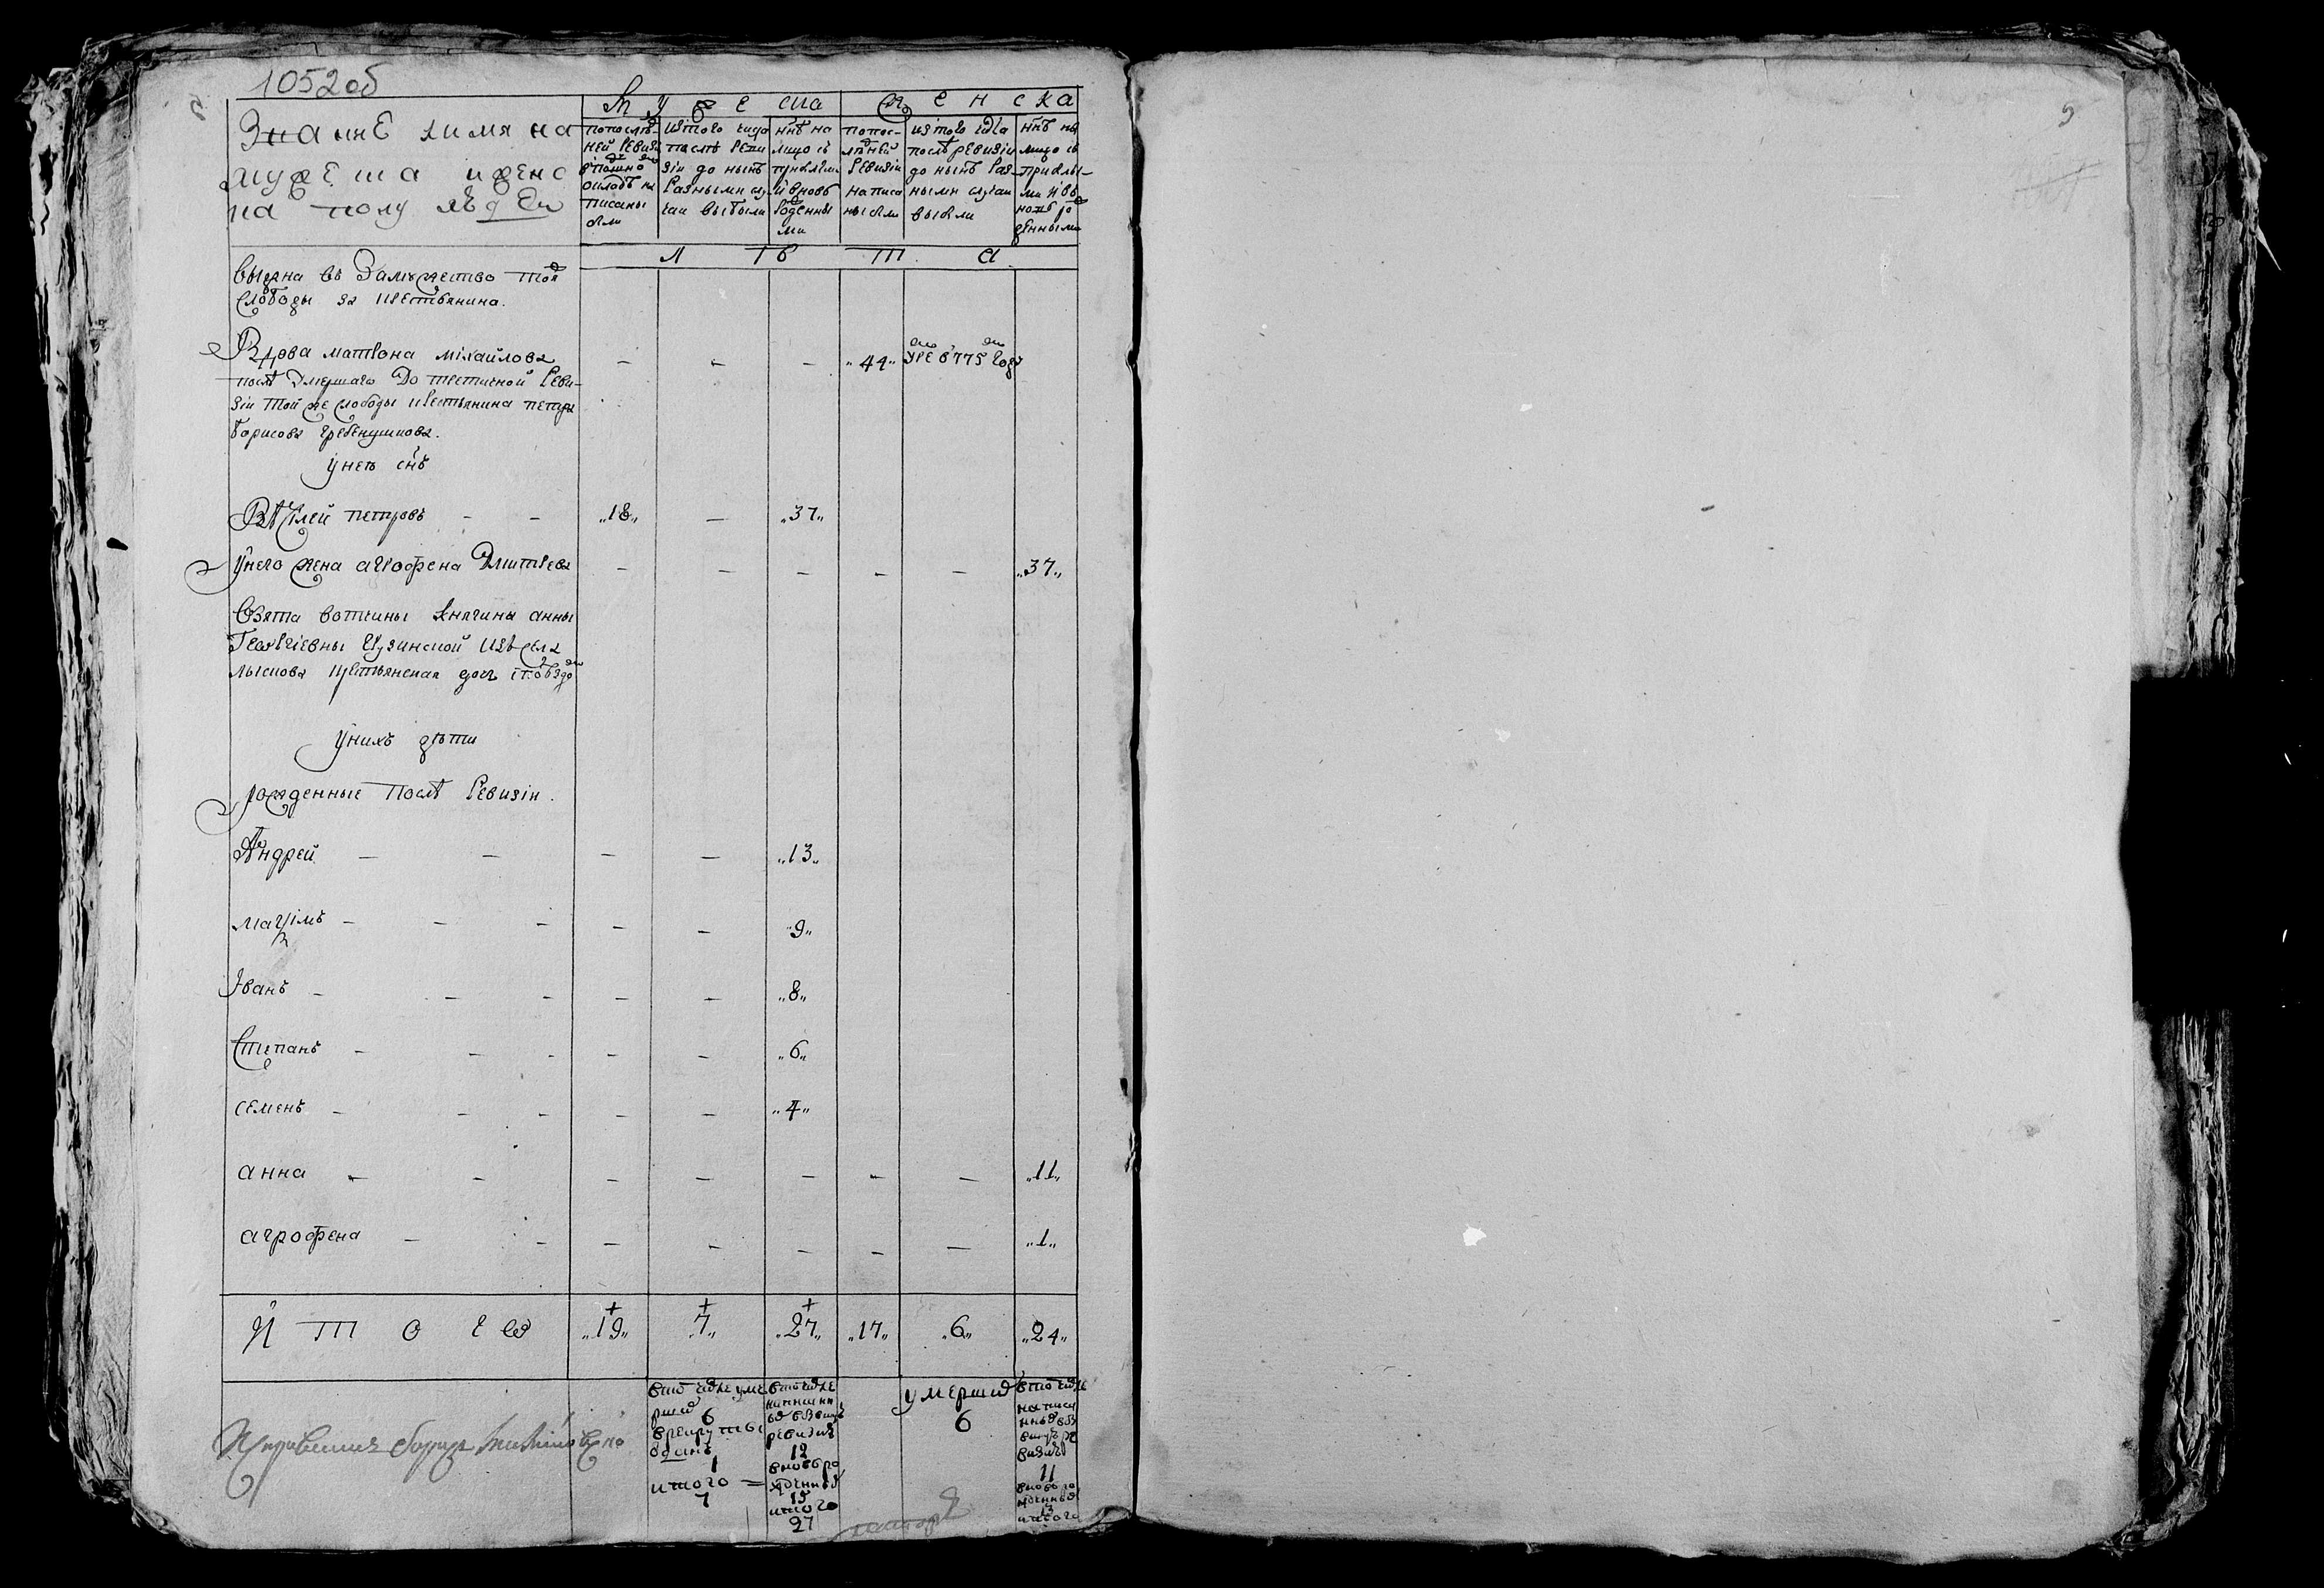 1052об
Званиѣ и имяна
мужеска и женс
ка полу людеи
Мужеска
Женска
по послѣд
ней ревизи
в подушно
окладѣ на
писаны
были
из того числа
послѣ реви
зiи до нынѣ
разными слу
чаи выбыли
ннѣ на
лицо съ
прибылым
и вновь
рожденны
ми
по пос-
лѣдней
ревизiи
написа
ны были
из того числа
послѣ ревизiи
до нынѣ раз-
ными случаи
выбыли
ннѣ на
лицо съ
прибылы-
ми и вь
новь ро
жденными
Л ѣ т а
выдана въ замужество той
слободы за крестьянина.
Вдова матрона мiхайлова
послѣ умершаго до третичной реви-
зiи той же слободы крестьянина петра
борисова гребенщикова.
„44„
умре в 775 году
у нея снъ
Василей петровъ - -
„18„ - „37„
у него жена агрофена Дмитрева
- - - - - „37„
взята вотчины княгини анны
Георгiевны Грузинской изъ села
лыскова крестьянская дочь
у нихъ дѣти
рожденные послѣ ревизiи.
Андрей - - - - „13„
маѯiмъ - - - - - „9„
Iванъ - - - - - „8„
Степанъ - - - - - „6„
семенъ - - - - - „4„
анна - - - - - - - „11„
агрофена - - - - - - - „1„
И т о г о „19„ „7„ „27„ „17„ „6„ „24„
в томъ числе уме
рших
6
в рекруты
отданъ
1
итого
7
в томъ числе
написанн
ыхъ в
ревизiи
12
вновь ро
жденных
15
итого
27
умерших
6
в томъ числе
написа
нных в
ревизiи
11
вновь ро
жденных
13
итого